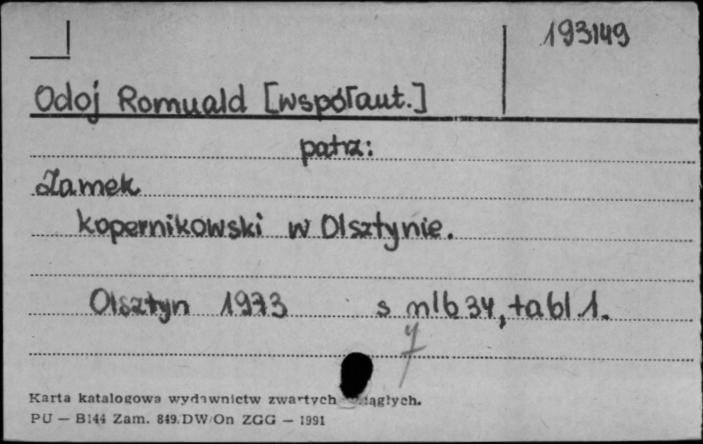 193149
Odoj Romuald [współaut.]
patrz:
Zamek
kopernikowski w Olsztynie.
Olsztyn 1973 s nlb 34, tabl 1.
Karta katalogowa wydawnictw zwartych
PU — B144 Zam. 849/DW/On ZGG — 1991